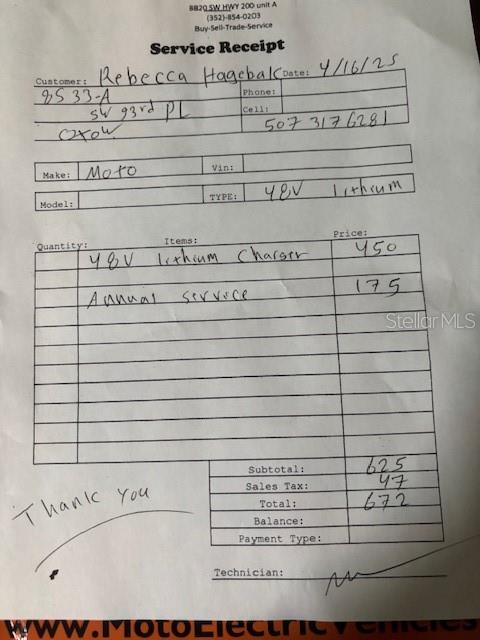 8820 SW HWY 200 unit A
(352)-854-0203
Buy-Sell-Trade-Service
Service Receipt
Customer: Rebecca Hagebak Date: 4/16/25
8533-A Phone:
SW 93rd PL Cell: 507 317 6281
Make: Moto Vin:
Model: TYPE: 48V lithium
Quantity: Items: Price:
48V lithium Charger 450
Annual service 175
StellarMLS
Subtotal: 625
Sales Tax: 47
Total: 672
Balance:
Payment Type:
Thank You
Technician:
www.MotoElectricVehicles